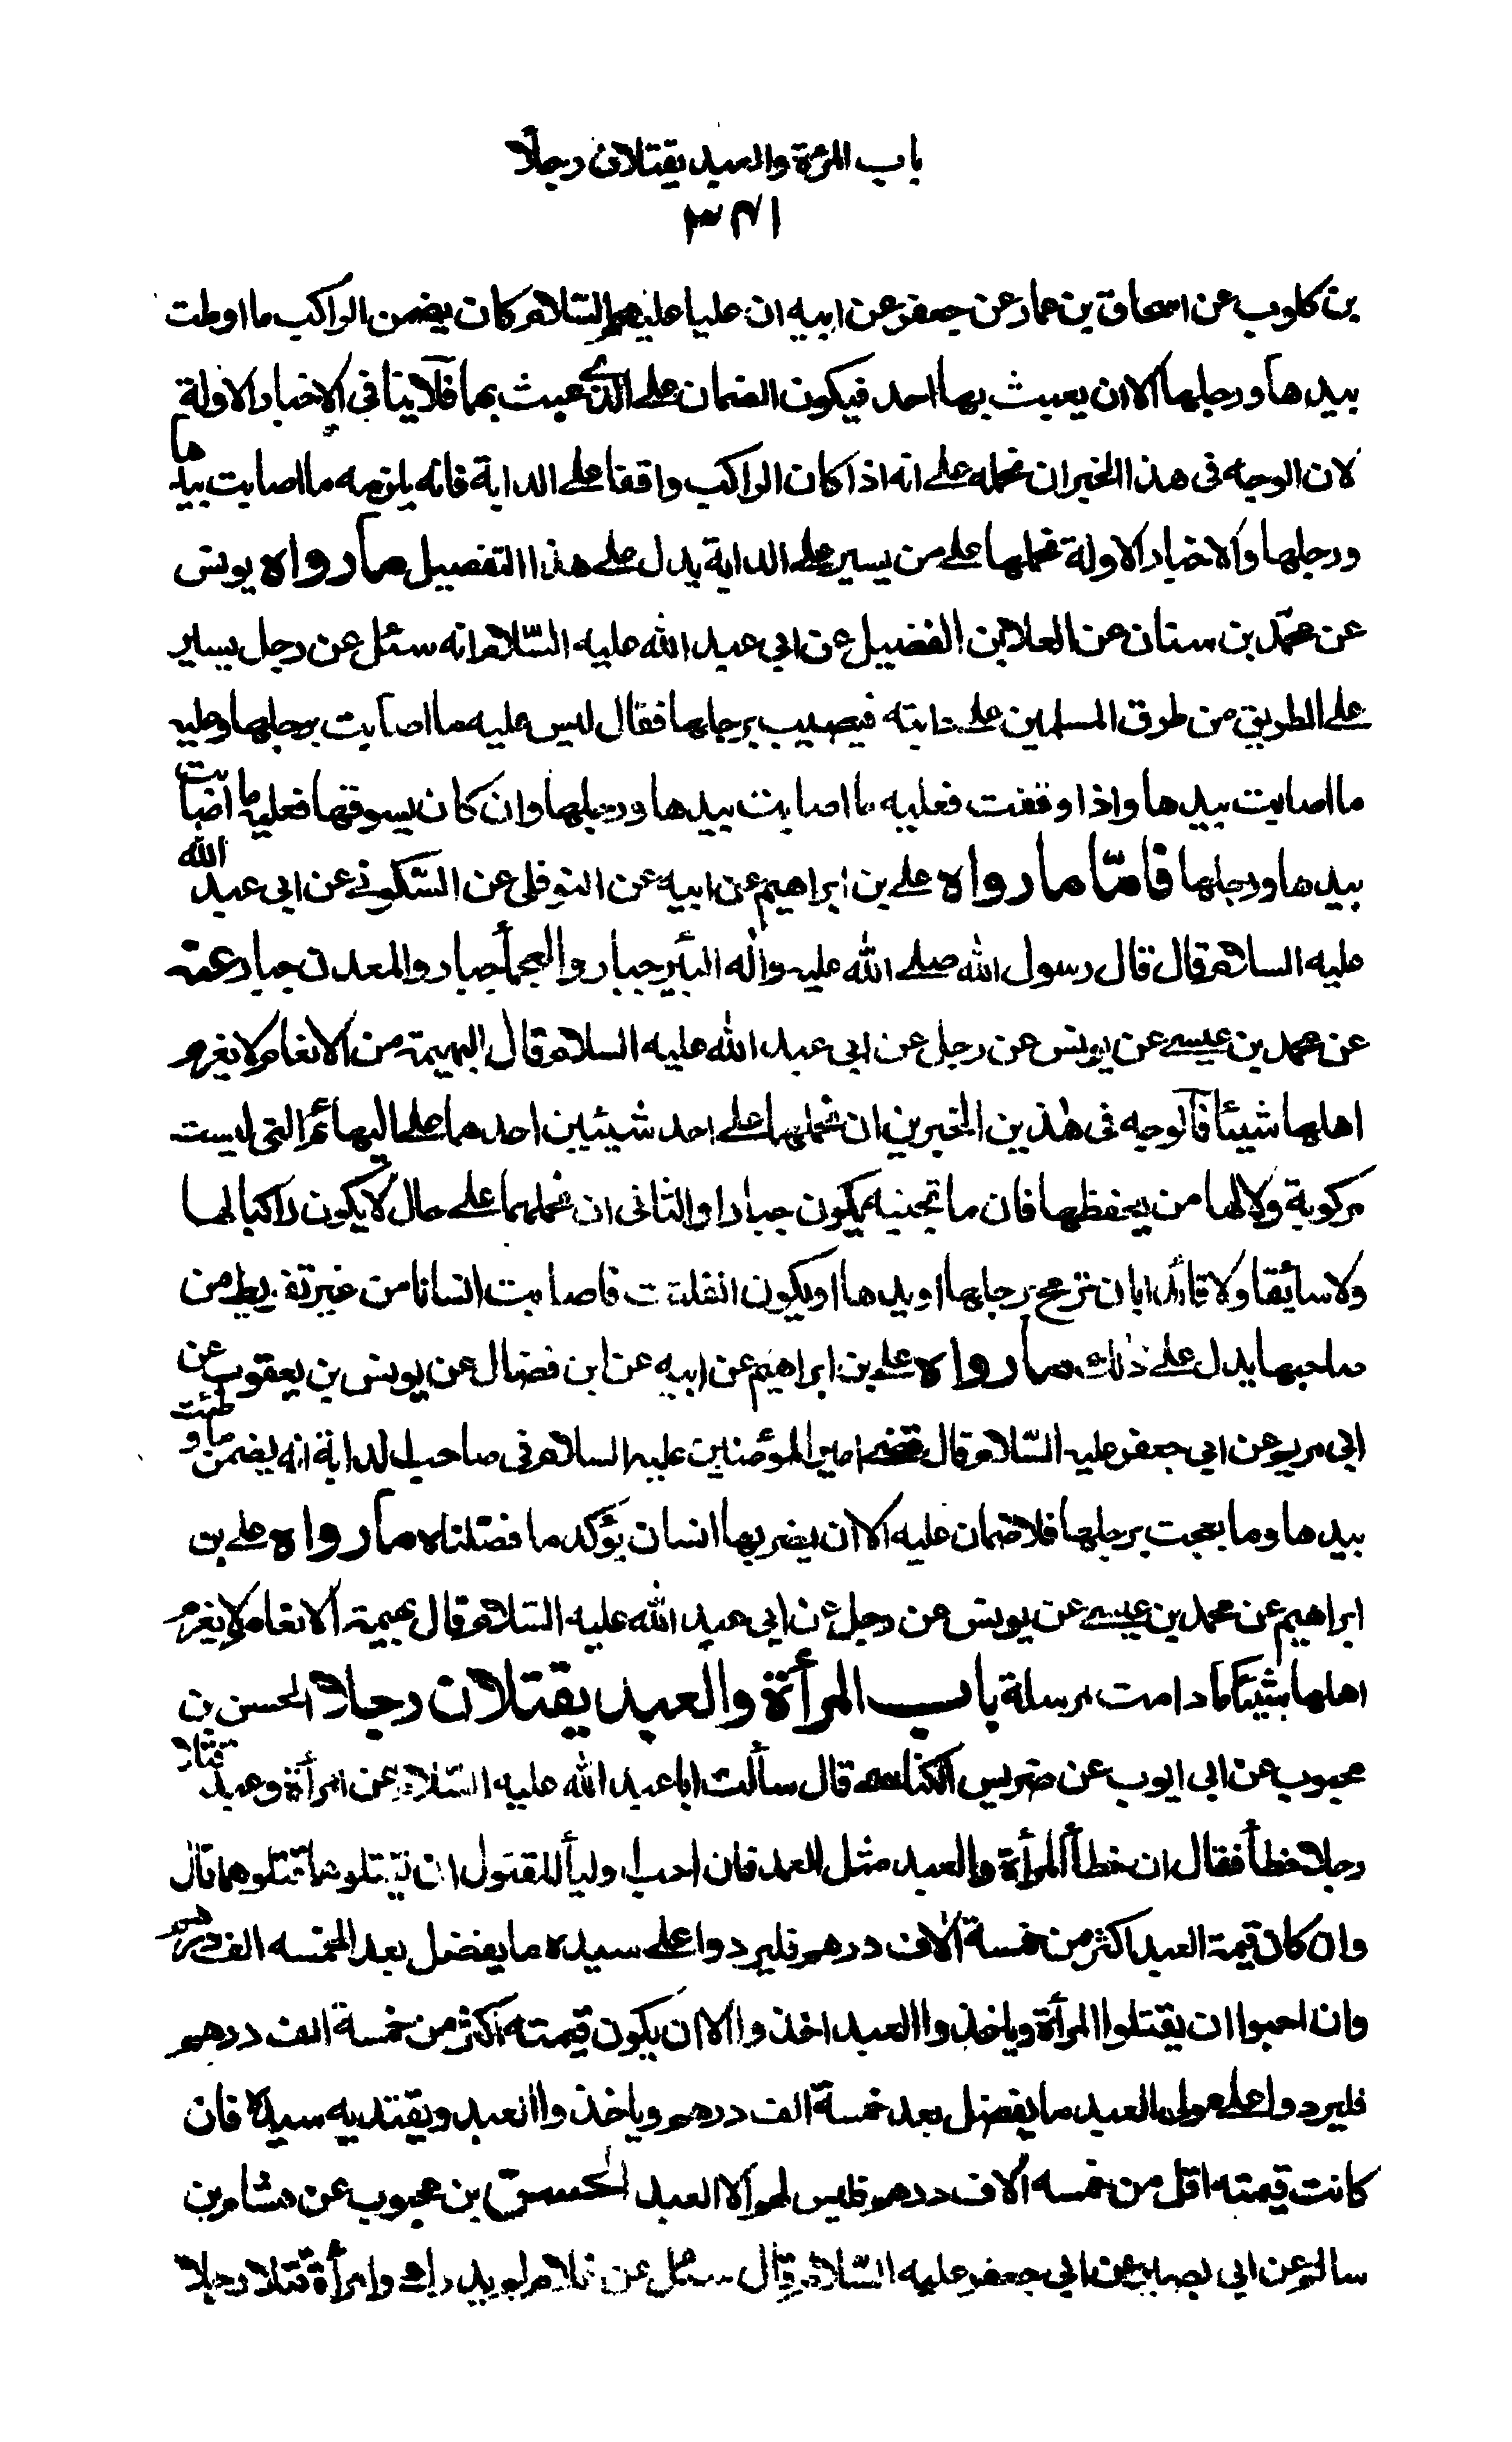 باب المرءة والعبد يقتلان رجلا
٣٤١
بن كلوب عن اسحاق بن عمار عن جعفر عن ابيه ان عليا عليهم السّلام كان يضمن الراكب ما اوطت
بيدها ورجلها الا ان يعبث بها احد فيكون الضمان على الذى عبث بها فلا ينافى الاخبار الاولة
لان الوجه فى هذا الخبر ان نحمله على انه اذا كان الراكب واقفا على الدابة فانه يلزمه ما اصابت بيدها
ورجلها والاخبار الاولة نحملها على من يسير على الدابة يدل على هذا التفصيل ما رواه يونس
عن محمّد بن سنان عن العلا بن الفضيل عن ابى عبد الله عليه السّلام انه سئل عن رجل يسير
على الطريق من طرق المسلمين على دابته فيصيب برجلها فقال ليس عليه ما اصابت برجلها وعليه
ما اصابت بيدها واذا وقفت فعليه ما اصابت بيدها ورجلها وان كان يسوقها فعليه ما اصابت
بيدها ورجلها فامّا ما رواه على بن ابراهيم عن ابيه عن النوفلى عن السّكونى عن ابى عبد الله
عليه السلام قال قال رسول الله صلى الله عليه وآله البئر جبار والعجمأ جبار والمعدن جبار عنه
عن محمد بن عيسى عن يونس عن رجل عن ابى عبد الله عليه السلام قال البهيمة من الانعام لا يغرم
اهلها شيئا فالوجه فى هذين الخبرين ان نحملها على احد شيئين احدهما على البهائم التى ليست
مركوبة ولا لها من يحفظها فان ما تجنيه يكون جبارا والثانى ان نحملهما على حال لا يكون راكبا لها
ولا سائقا ولا قائدا بان ترمح برجلها او يدها او يكون انفلتت فاصابت انسانا من غير تفريط من
صاحبها يدل على ذلك ما رواه على بن ابراهيم عن ابيه عن ابن فضال عن يونس بن يعقوب عن
ابى مريم عن ابى جعفر عليه السّلام قال قضى امير المؤمنين عليه السلام فى صاحب الدابة انه يضمن ما وطئت
بيدها وما بعجت برجلها فلا ضمان عليه الا ان يضربها انسان يؤكد ما فصّلناه ما رواه على بن
ابراهيم عن محمد بن عيسى عن يونس عن رجل عن ابى عبد الله عليه السّلام قال بهيمة الانعام لا يغرم
اهلها شيئا ما دامت مرسلة باب المرأة والعبد يقتلان رجلا الحسن بن
محبوب عن ابى ايوب عن ضريس الكناسى قال سألت ابا عبد الله عليه السّلام عن امرأة وعبد قتلا
رجلا خطأ فقال ان خطأ المرأة والعبد مثل العمد فان احب وليأ المقتول ان يقتلوهما قتلوهما قال
وان كان قيمة العبد اكثر من خمسة آلاف درهم فليردوا على سيده ما يفضل بعد الخمسه الف درهم
وان احبوا ان يقتلوا المرأة وياخذوا العبد اخذوا الا ان يكون قيمته اكثر من خمسة الف درهم
فليردوا على مولى العبد ما يفضل بعد خمسة الف درهم وياخذوا العبد ويفتديه سيده فان
كانت قيمته اقل من خمسه آلاف درهم فليس لهم الا العبد الحسن بن محبوب عن هشام بن
سالم عن ابى بصير عن ابى جعفر عليه السّلام قال سئل عن غلام لم يدرك وامرأة قتلا رجلا